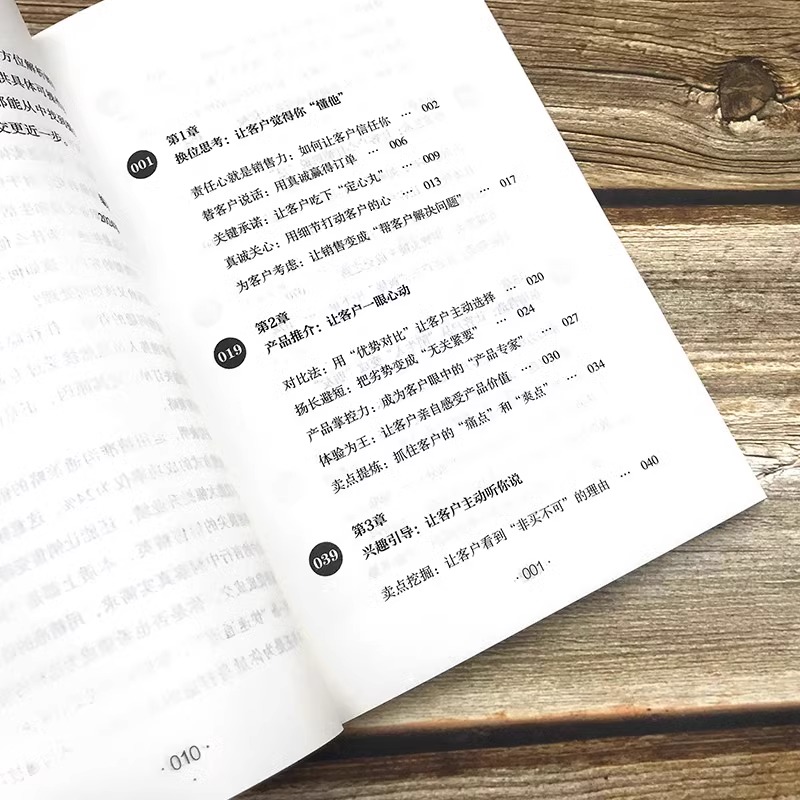 方位解
供具体可
都能从中找到
交更近一步。
第1章
001
换位思考：让客户觉得你“懂他”
责任心就是销售力：如何让客户信任你 … 002
替客户说话：用真诚赢得订单 … 006
关键承诺：让客户吃下“定心丸” … 009
真诚关心：用细节打动客户的心 … 013
为客户考虑：让销售变成“帮客户解决问题” … 017
第2章
019
产品推介：让客户一眼心动
对比法：用“优势对比”让客户主动选择 … 020
扬长避短：把劣势变成“无关紧要” … 024
产品掌控力：成为客户眼中的“产品专家” … 027
体验为王：让客户亲自感受产品价值 … 030
卖点提炼：抓住客户的“痛点”和“爽点” … 034
第3章
039
兴趣引导：让客户主动听你说
卖点挖掘：让客户看到“非买不可”的理由 … 040
·001·
·010·